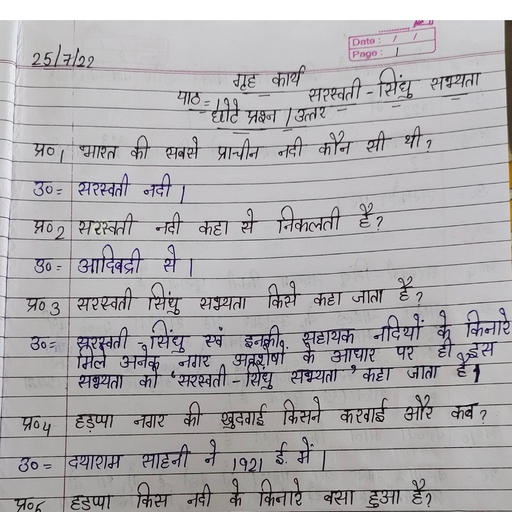 25/7/22
Date: / /
Page: 1
गृह कार्य
पाठ = 1 सरस्वती - सिंधु सभ्यता
छोटे प्रश्न / उत्तर
प्र० 1 भारत की सबसे प्राचीन नदी कौन सी थी?
उ० = सरस्वती नदी ।
प्र० 2 सरस्वती नदी कहा से निकलती है?
उ० = आदिबद्री से ।
प्र० 3 सरस्वती सिंधु सभ्यता किसे कहा जाता है?
उ० = सरस्वती - सिंधु एवं इनकी सहायक नदियों के किनारे
मिले अनेक नगर अवशेषों के आधार पर ही इस
सभ्यता को 'सरस्वती - सिंधु सभ्यता' कहा जाता है।
प्र० 4 हड़प्पा नगर की खुदवाई किसने करवाई और कब?
उ० = दयाराम साहनी ने 1921 ई. में ।
प्र० 5 हड़प्पा किस नदी के किनारे बसा हुआ है?